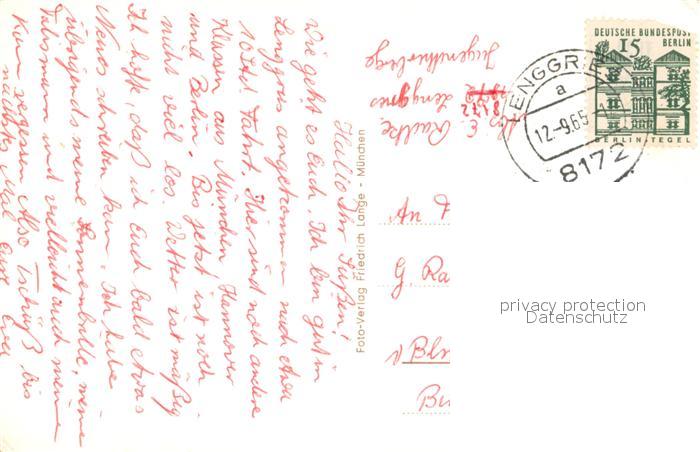 Hallo Ihr Süßen!
Wie geht es Euch. Ich bin gut in
Lenggries angekommen nach etwa
10 Std! Fahrt. Hier sind noch andere
Klassen aus München Hannover
und Berlin. Bis jetzt ist noch
nicht viel los. Wetter ist mäßig
Ich hoffe daß ich Euch bald etwas
Neues schreiben kann. Ich habe
übrigends meine Sonnenbrille, meine
und vielleicht auch meine
vergessen Also Tschüß bis
nächstes Mal Eure
Foto-Verlag Friedrich Lange - München
8172 Lenggries
Jugendherberge
An F
G. Ra
Bln
DEUTSCHE BUNDESPOST
BERLIN
15
BERLIN-TEGEL
LENGGRIES
a
12.-9.65
8172
privacy protection
Datenschutz